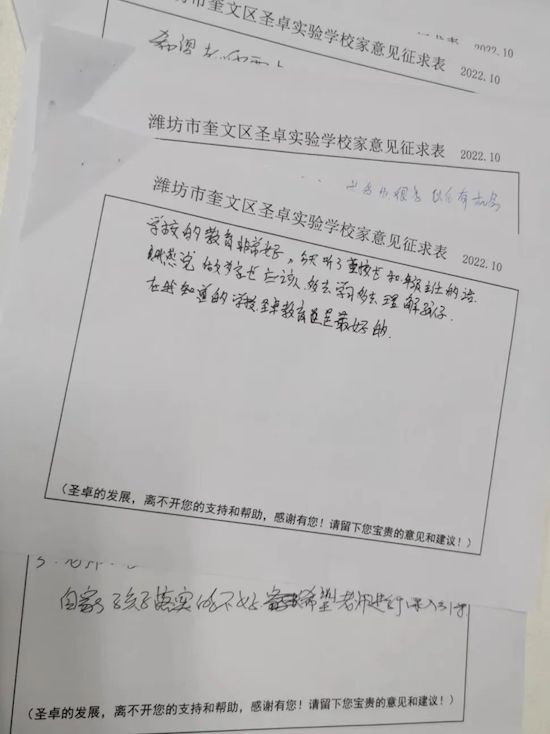 2022.10
潍坊市奎文区圣卓实验学校家意见征求表 2022.10
希望
潍坊市奎文区圣卓实验学校家意见征求表 2022.10
潍坊市奎文区圣卓实验学校家意见征求表 2022.10
学校的教育非常好，今天听了董校长和年级主任的话
就感觉做为家长应该多去学习多去理解孩子.
在我知道的学校圣卓教育真是最好的.
(圣卓的发展，离不开您的支持和帮助，感谢有您！请留下您宝贵的意见和建议！)
自家孩子落实的不好 希望老师进行深入引导
(圣卓的发展，离不开您的支持和帮助，感谢有您！请留下您宝贵的意见和建议！)